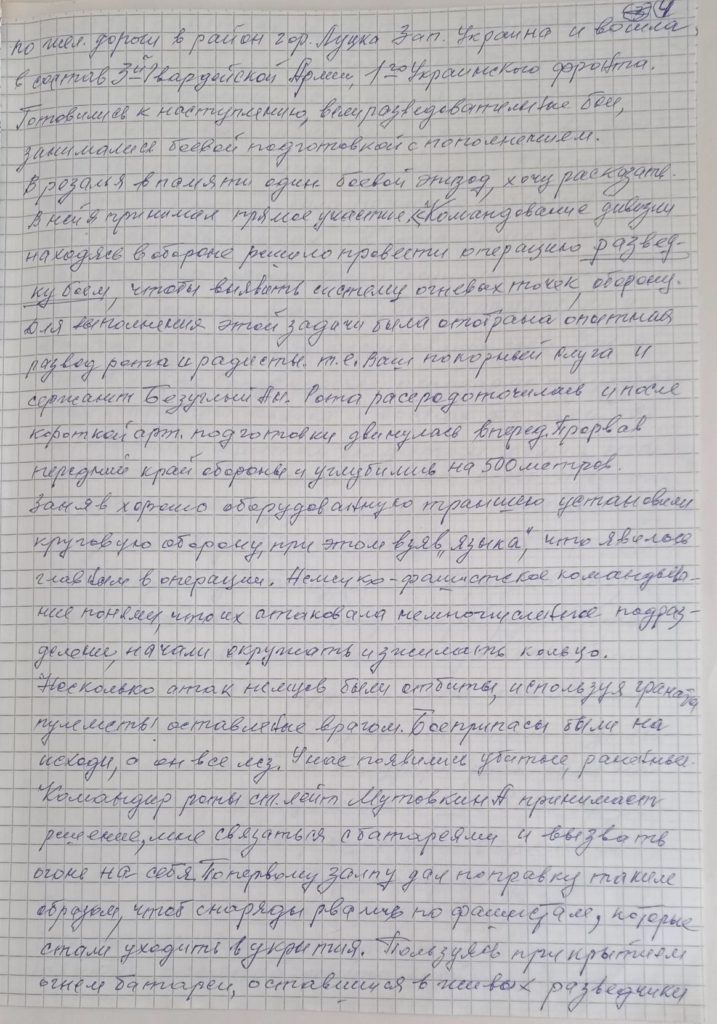 4
по жел. дороги в район гор. Луцка Зап. Украина и вошла
в состав 3й Гвардейской Армии, 1го Украинского фронта.
Готовились к наступлению, вели разведовательные бои,
занимались боевой подготовкой с пополнением.
Врозалья в памяти один боевой эпизод, хочу расказать.
В ней я принимал прямое участие. Командование дивизии
находясь в обороне решило провести операцию развед-
ку боем, чтобы выявить систему огневых точек, оборону.
Для выполнения этой задачи была отобрана опытная
развед рота и радисты. т.е. Ваш покорный слуга и
сержант Безуглый Ан. Рота расеродоточилась и после
короткой арт. подготовки двинулась вперед. Прорвав
передний край обороны и углубились на 500 метров.
Заняв хорошо оборудованную траншею установили
круговую оборону, при этом взяв "языка", что явилось
главным в операции. Немецко-фашистское командова-
ние поняли, что их атаковала немногисленое подраз-
деление, начали окружать и зжимать кольцо.
Несколько атак немцев были отбиты, используя гранаты
пулеметы оставленые врагом. Боеприпасы были на
исходи, а он все лез. У нас появились убитые, раненные.
Командир роты ст. лейт Мутовкин А принимает
решение, мне связаться с батареями и вызвать
огонь на себя. По первому залпу дал поправку таким
образом, чтоб снаряды рвались по фашистам, которые
стали уходить в укрытия. Пользуясь прикрытием
огнем батареи, оставшиеся в живых разведчики